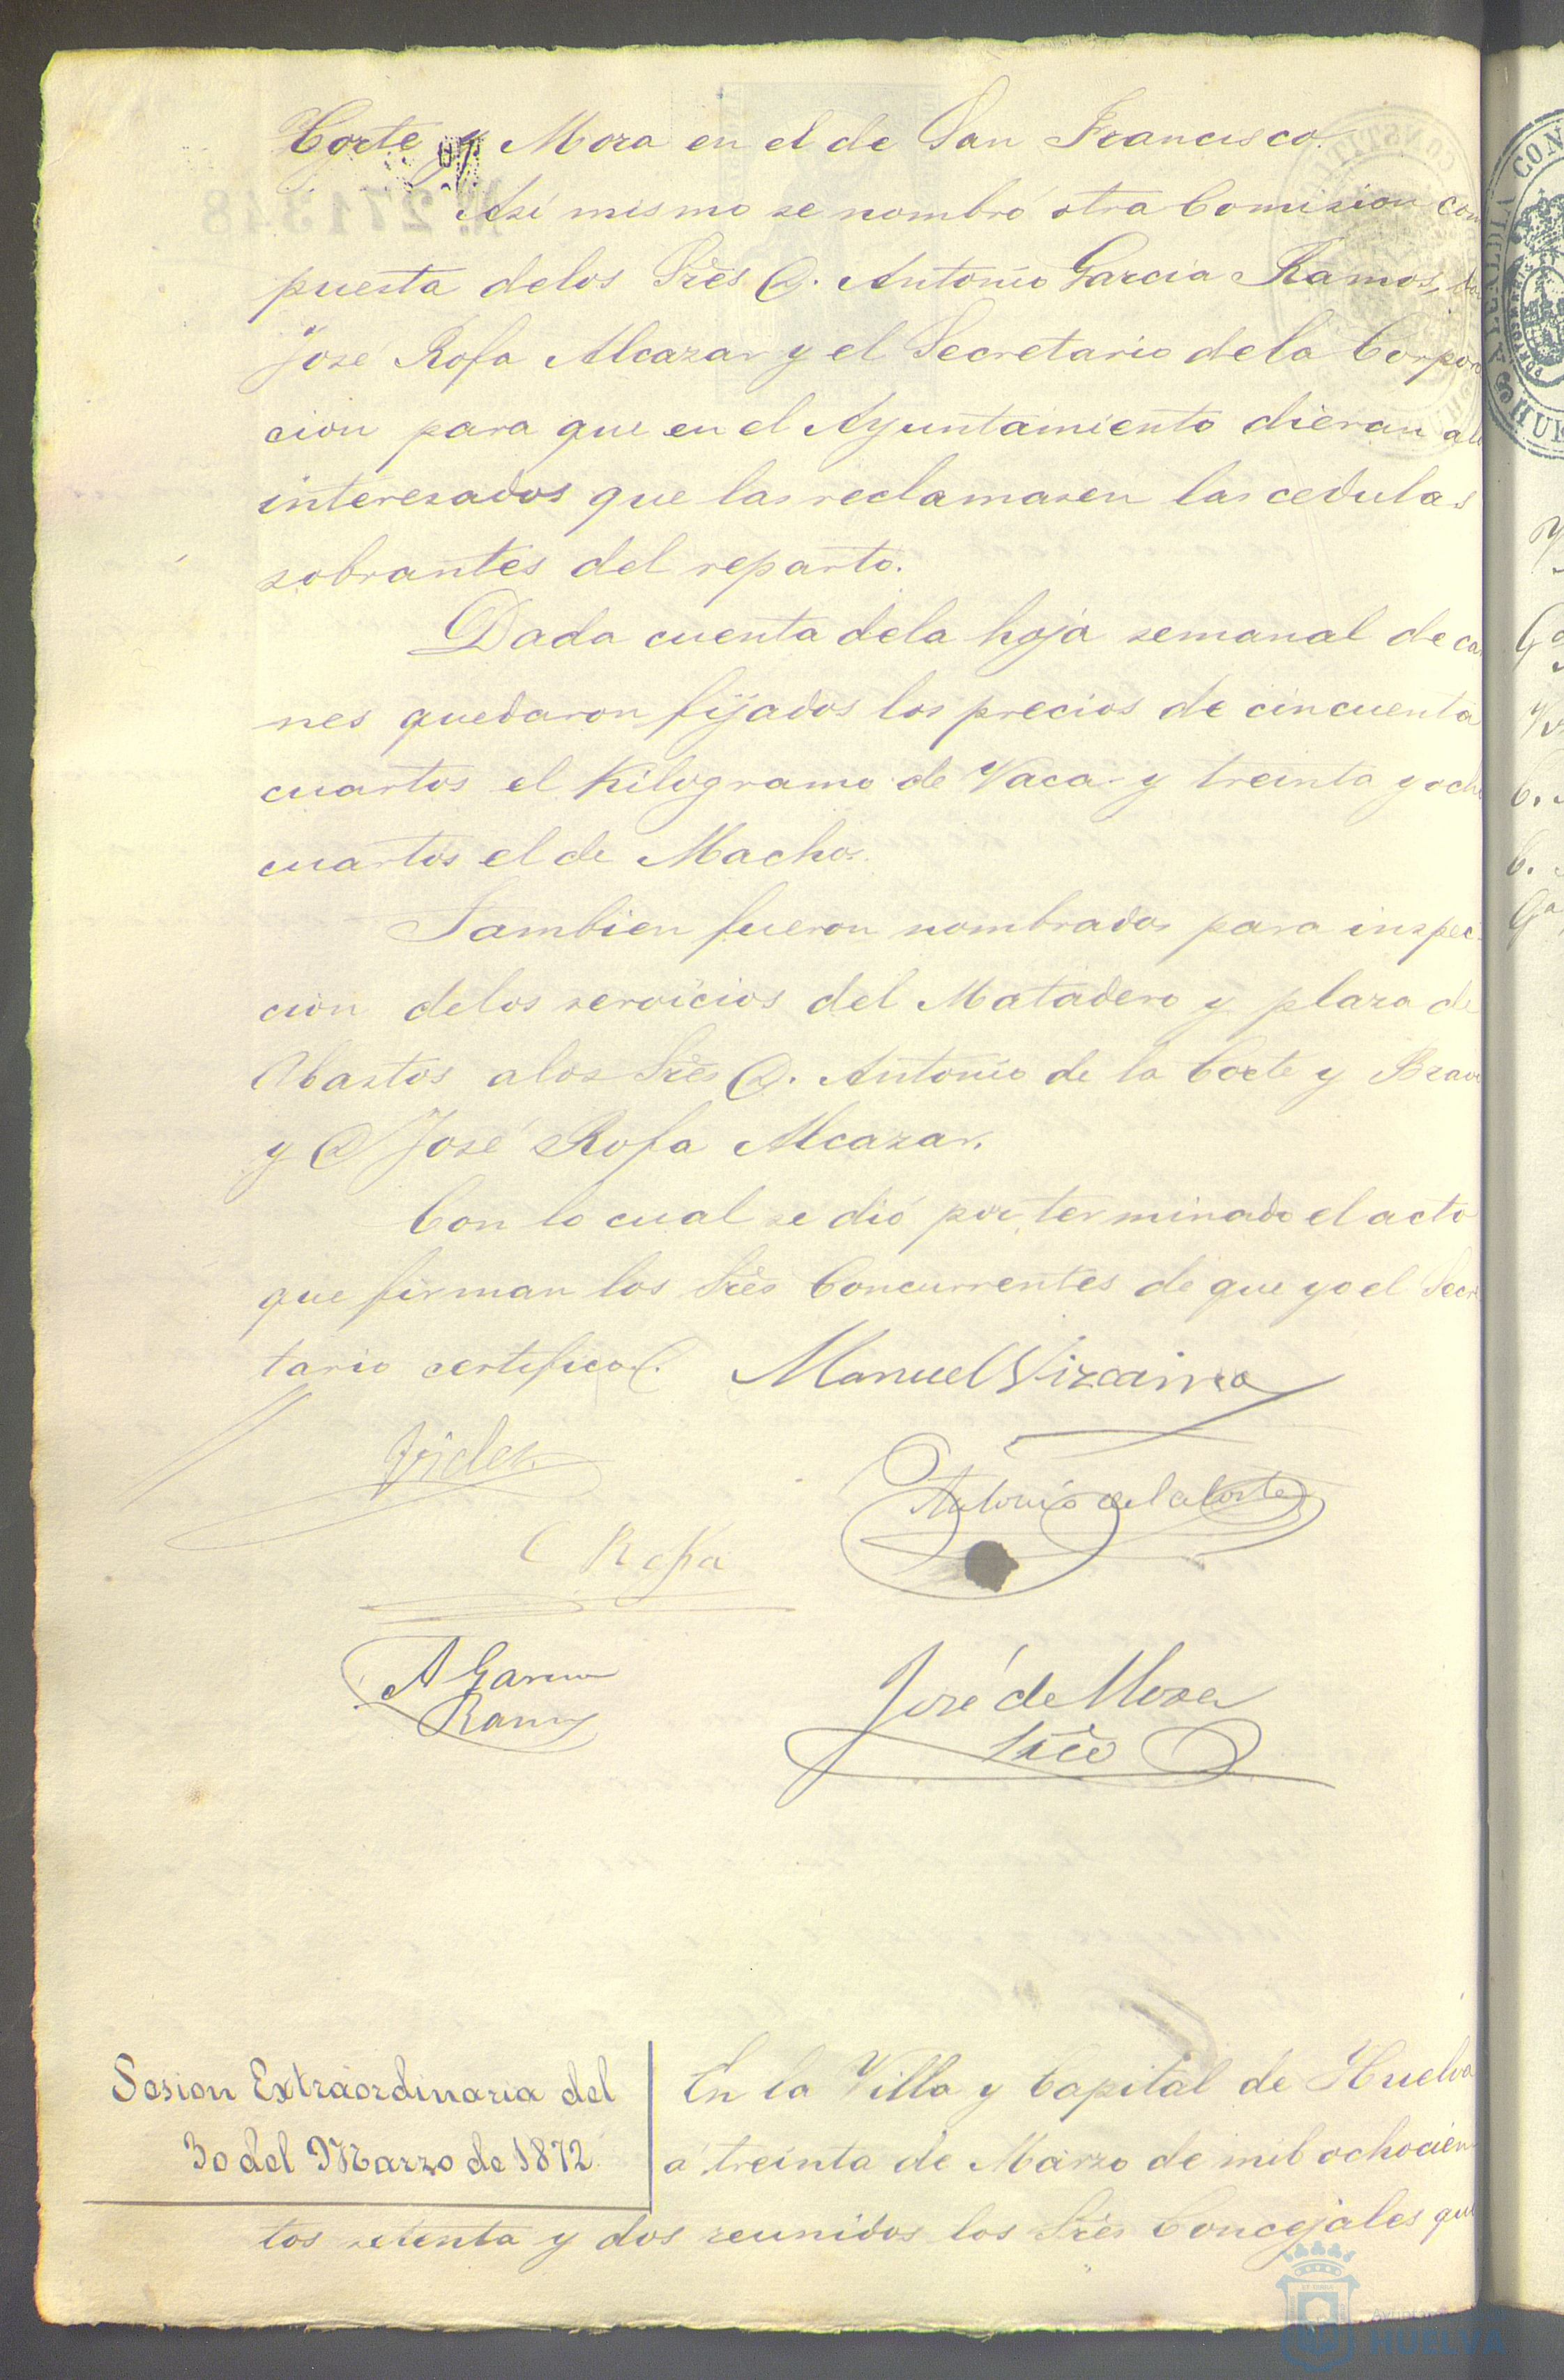 Corte y Mora en el de San Francisco.
Asi mismo se nombró otra Comision com
puesta delos Sres D. Antonio Garcia Ramos, do
José Rofa Alcazar y el Secretario dela Corpora
cion para que en el Ayuntamiento dieran alo
interesados que las reclamasen las cedulas
sobrantes del reparto.
Dada cuenta dela hoja semanal de car
nes quedaron fijados los precios de cincuenta
cuartos el Kilogramo de Vaca y treinta y ocho
cuartos el de Macho.
Tambien fueron nombrados para inspec-
cion delos servicios del Matadero y plaza de
Abastos alos Sres D. Antonio de la Corte y Bravo
y D José Rofa Alcazar.
Con lo cual se dió por terminado el acto
que firman los Sres Concurrentes de que yo el Secre
tario certifico.
Manuel Vizcaino
Antonio de la Corte
Rofa
A Garcia
Ramos
José de Mora
Srio
Sesion Extraordinaria del
30 del Marzo de 1872
En la Villa y Capital de Huelva
á treinta de Marzo de mil ochocien
tos setenta y dos reunidos los Sres Concejales que
Nº 271348
HUELVA